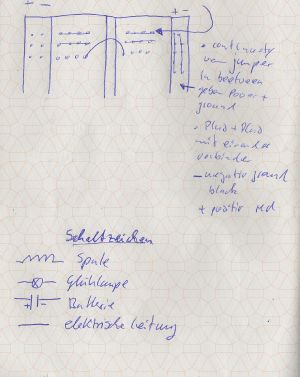 + -
+ -
• continuity
von jumper
in between
geben Power +
ground
• Plus + Plus
mit einander
verbinden
- negativ ground
black
+ positiv red
Schaltzeichen
Spule
Glühlampe
+ - Batterie
elektrische Leitung